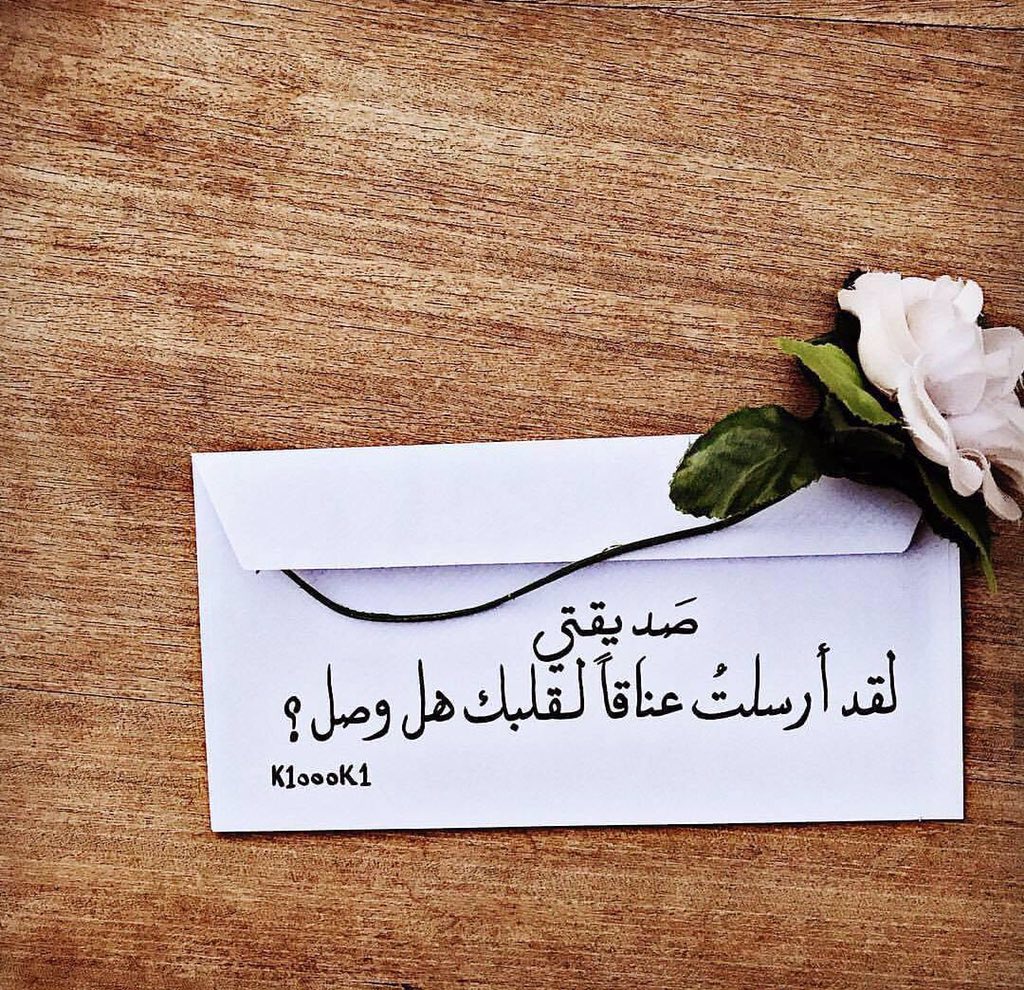 صَديقتي
لقد أرسلتُ عناقاً لقلبك هل وصل ؟
K1oooK1